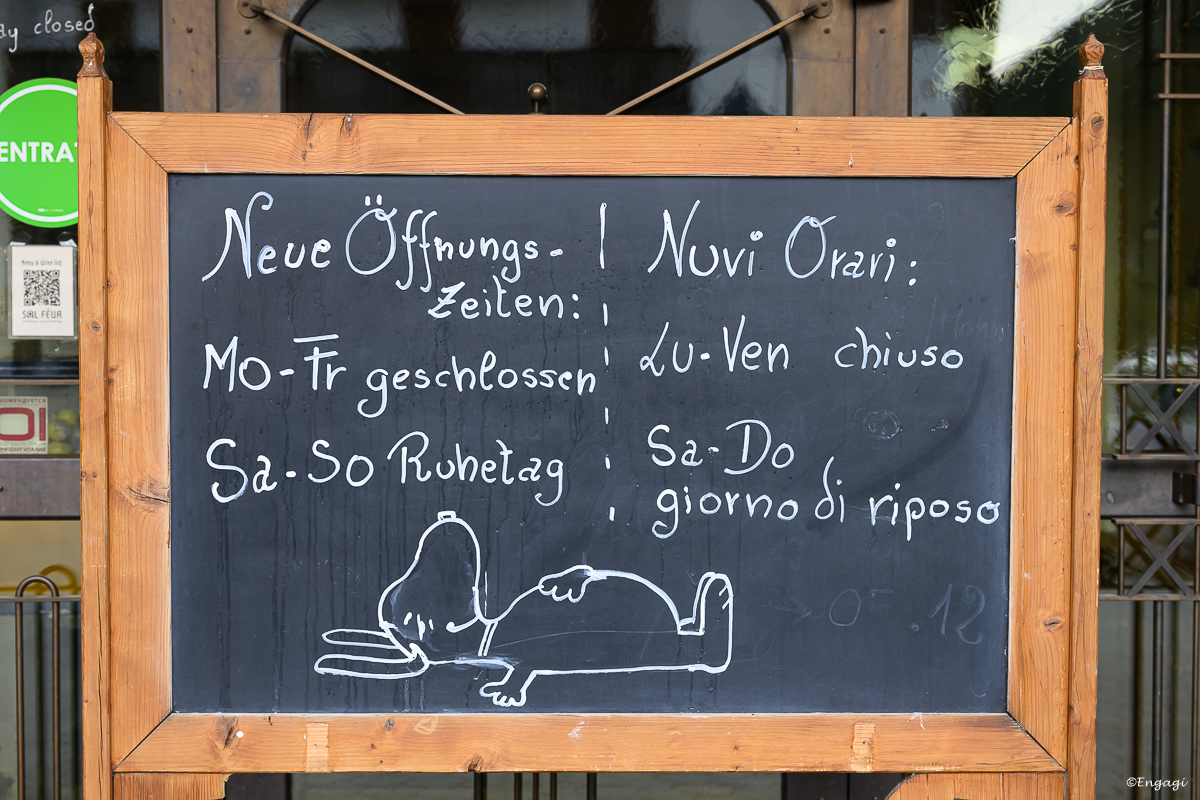 ay closed
ENTRAT
Menu & Wine list
SOL FÉUR
Neue Öffnungs-
Zeiten:
Mo-Fr geschlossen
Sa-So Ruhetag
Nuvi Orari:
Lu-Ven chiuso
Sa-Do
giorno di riposo
.12
©Engagi